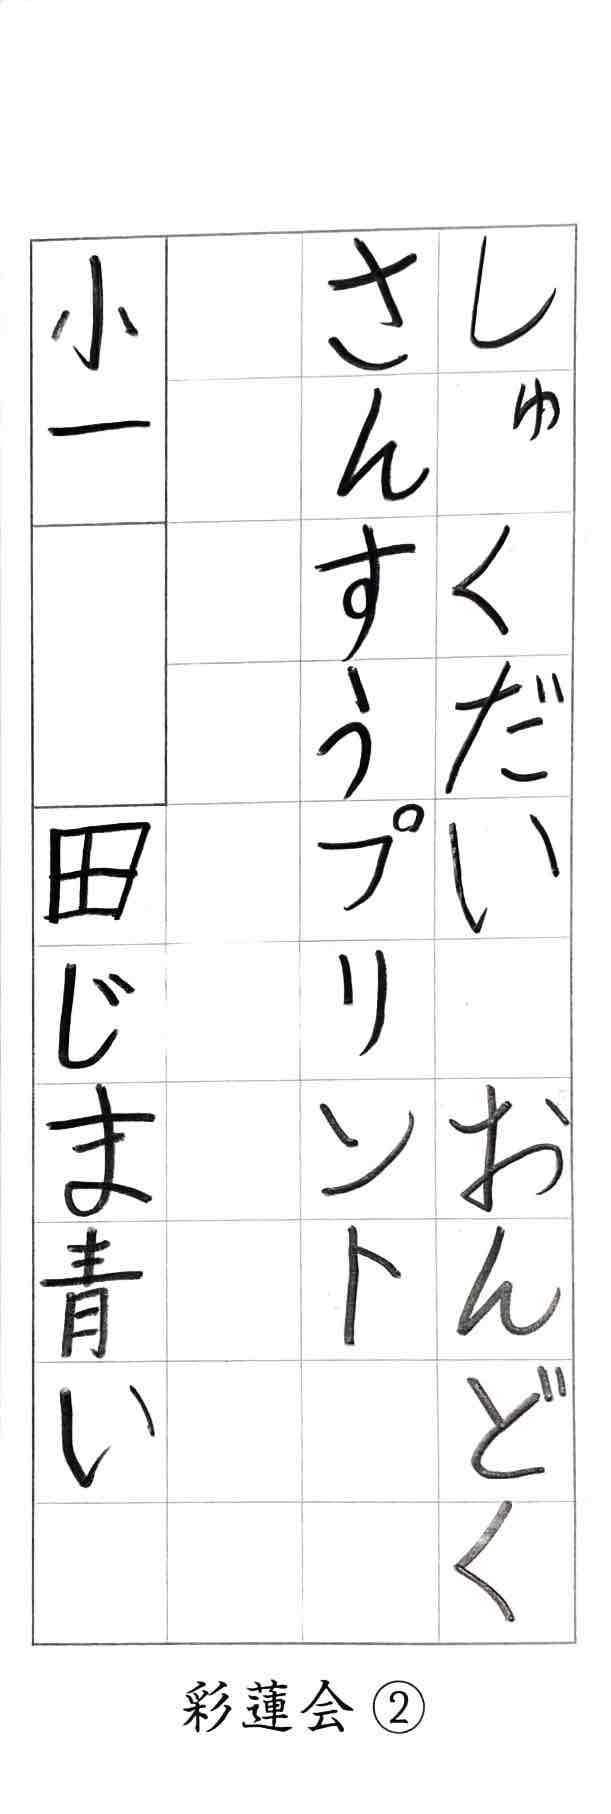 しゅくだい　おんどく
さんすうプリント
小一　田じま青い
彩蓮会②